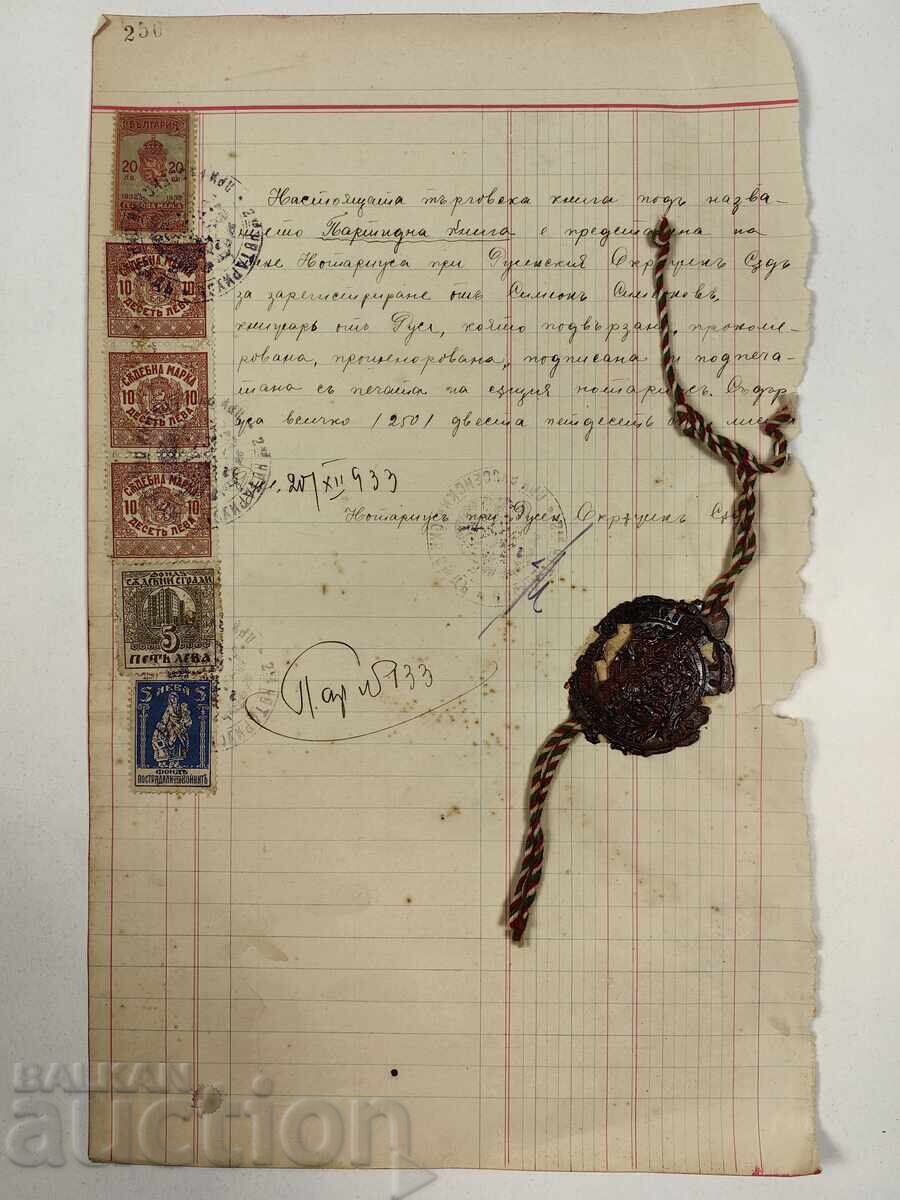 250
БЪЛГАРИЯ
20 20
СѪДЕБНА МАРКА
10 10
ДЕСЕТЬ ЛЕВА
СѪДЕБНА МАРКА
10 10
ДЕСЕТЬ ЛЕВА
СѪДЕБНА МАРКА
10 10
ДЕСЕТЬ ЛЕВА
ФОНДЪ
СѪДЕБНИ СГРАДИ
5
ПЕТЬ ЛЕВА
5 ЛЕВА 5
ФОНДЪ
ПОСТРАДАЛИ ОТЪ ВОЙНИТѢ
Настоящата търговска книга подъ назва-
нието Партидна книга е представена на
мене Нотариуса при Русенския Окрѫженъ Сѫдъ
за зарегистриране отъ Симеонъ Симеоновъ
книжарь отъ Русе, която подвързана, прономе-
рована, прошнорована, подписана и подпеча-
тана съ печата на сѫщия нотариусъ. Съдър
жа всичко /250/ двеста петдесеть
20/XII 933
Нотариусъ при Русен. Окрѫженъ Сѫдъ
933
BALKAN
auction